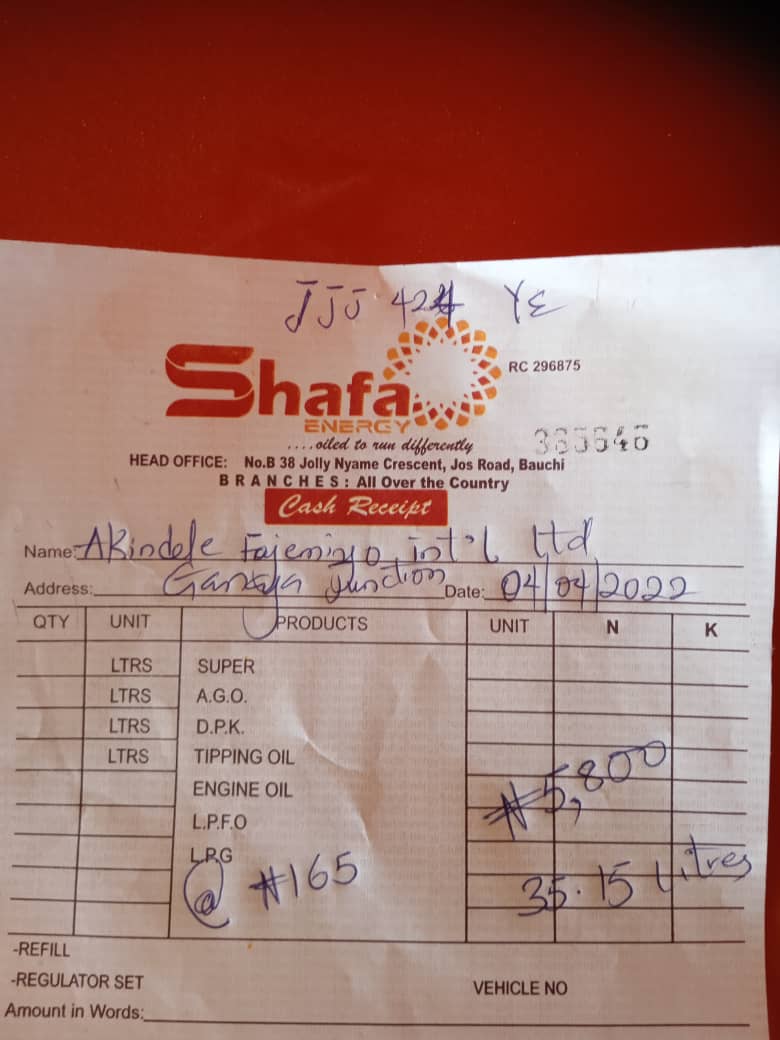 JJJ 424 YE
Shafa
ENERGY
RC 296875
....oiled to run differently
HEAD OFFICE: No.B 38 Jolly Nyame Crescent, Jos Road, Bauchi
BRANCHES: All Over the Country
Cash Receipt
Name: Akindele Fajemiyo int'l Ltd
Address: Junction Date: 04/04/2022
QTY UNIT PRODUCTS UNIT N K
LTRS SUPER
LTRS A.G.O.
LTRS D.P.K.
LTRS TIPPING OIL
ENGINE OIL
₦5,800
L.P.F.O
LPG
@ ₦165 35.15 Litres
-REFILL
-REGULATOR SET VEHICLE NO
Amount in Words: